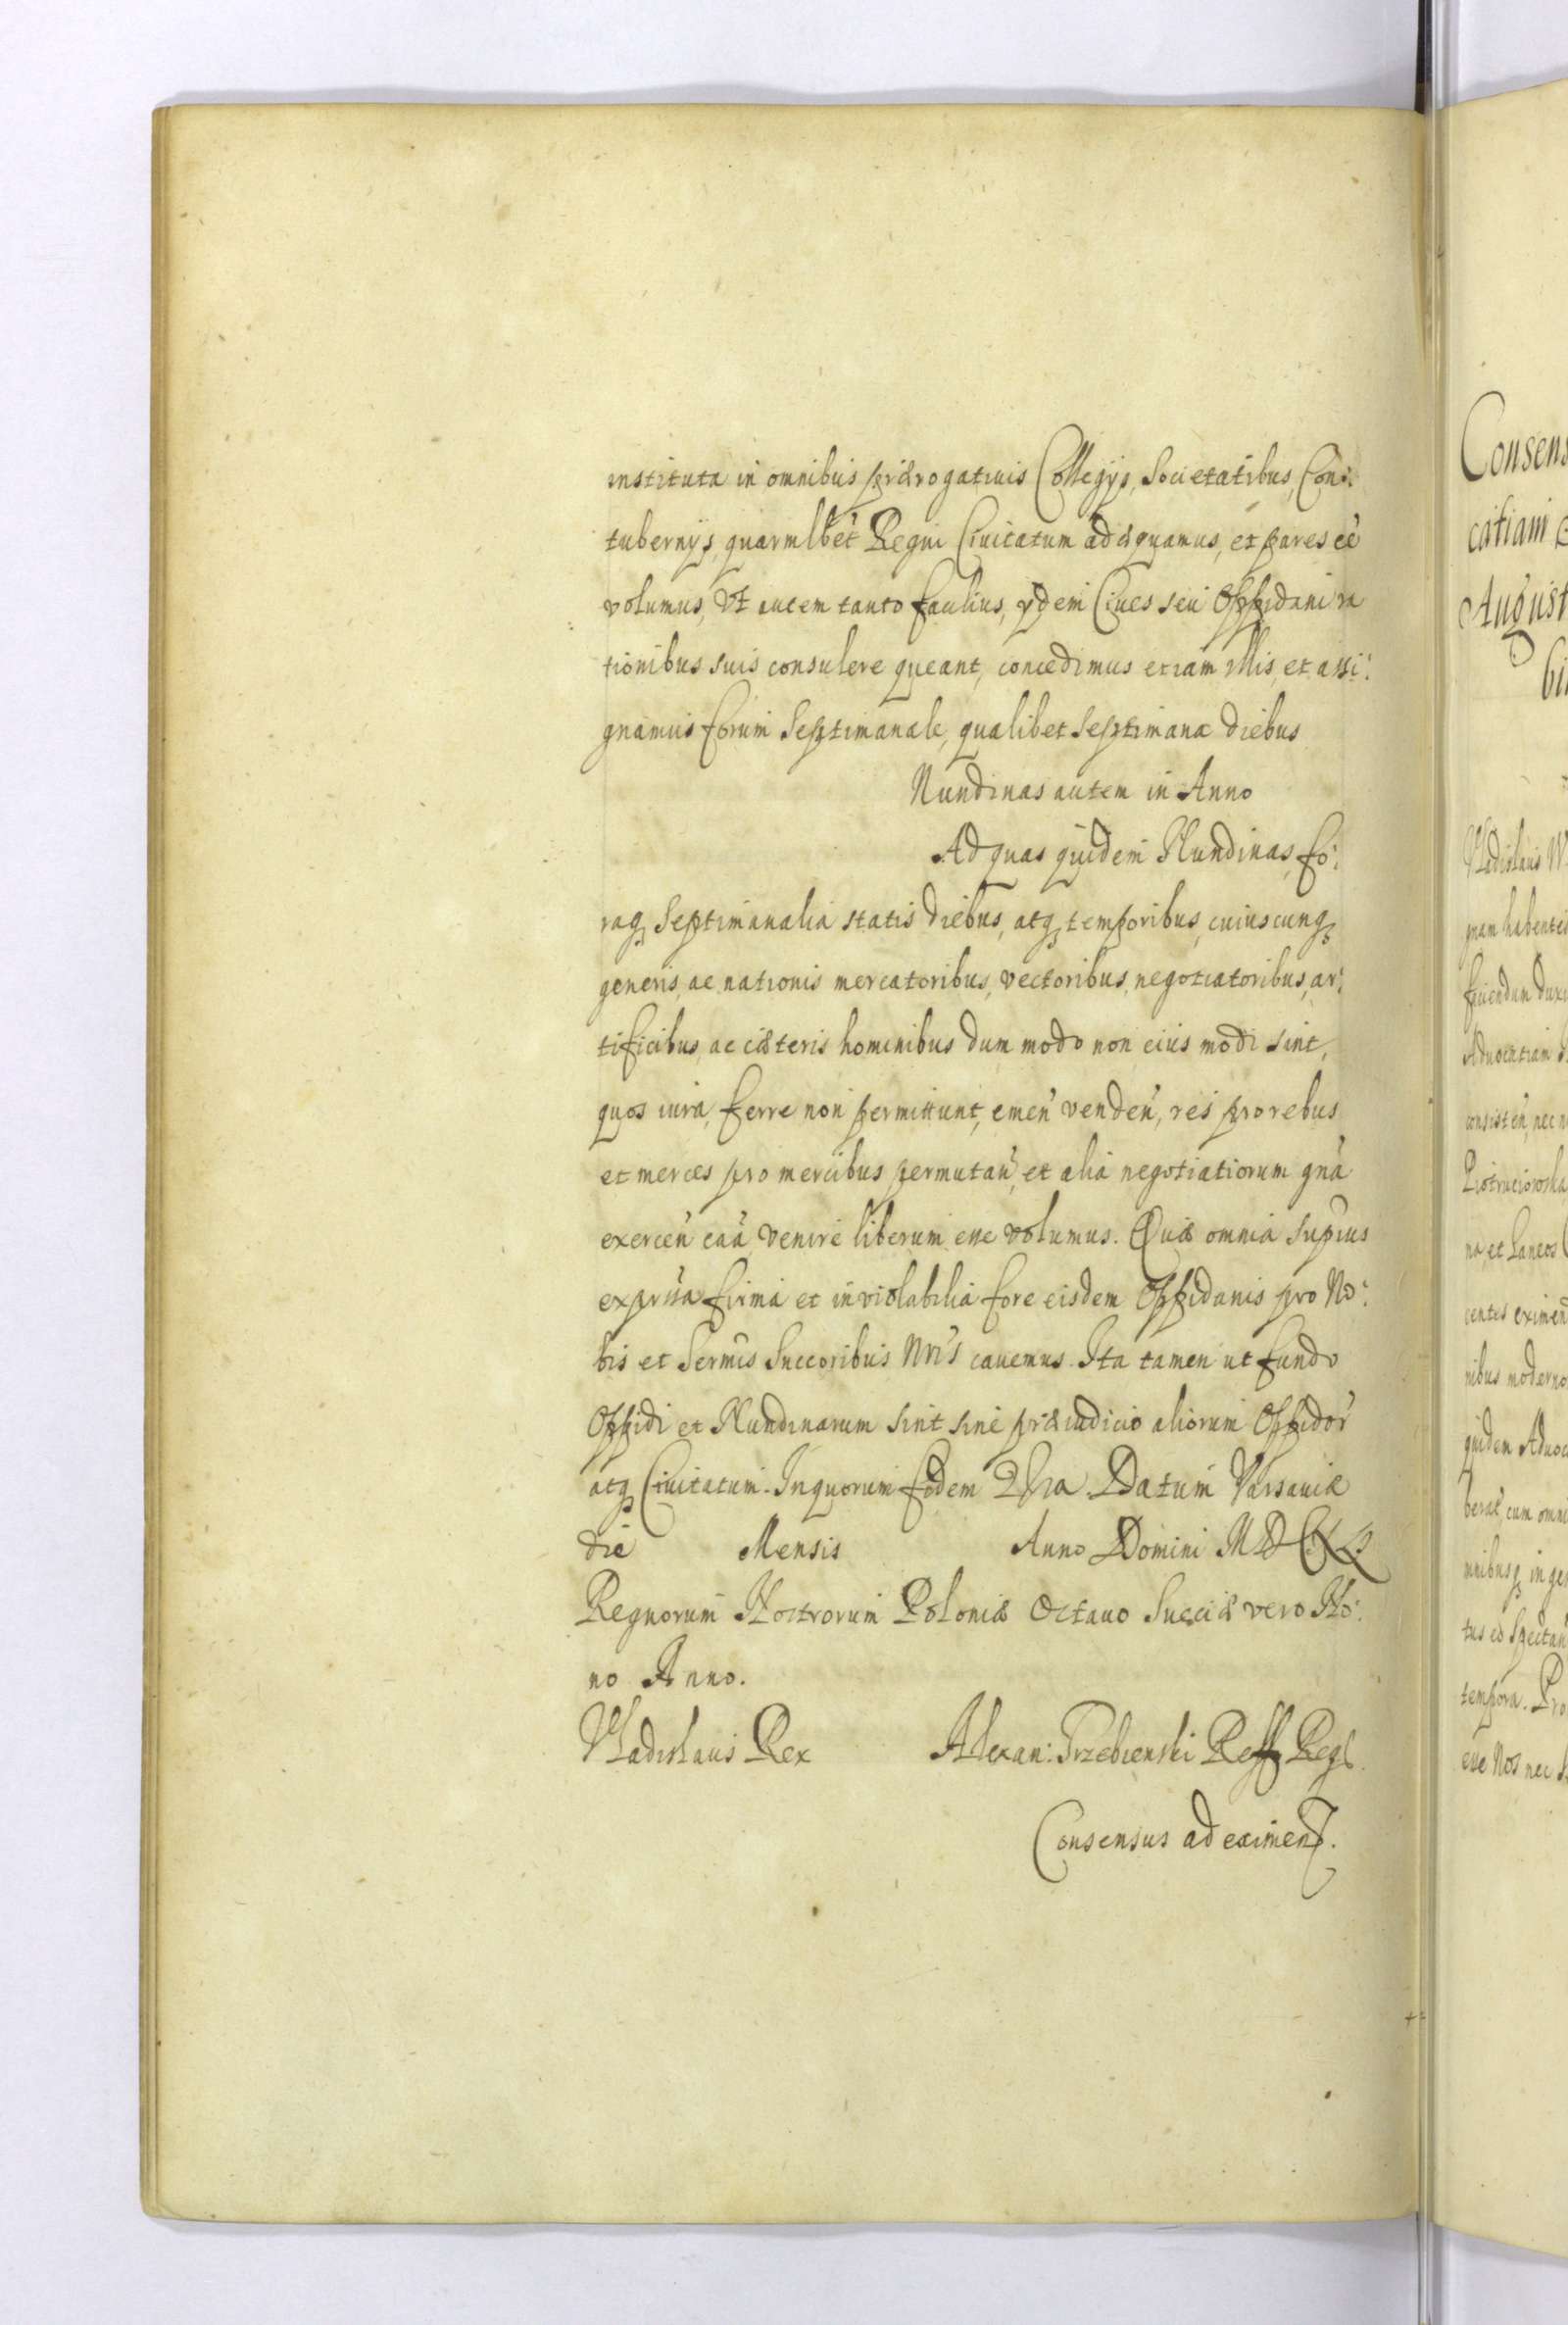 instituta in omnibus prærogatiuis Collegijs, Societatibus, Con:
tubernijs, quarumlbet Regni Ciuitatum adæquamus, et pares eē
volumus, Vt autem tanto facilius, ydem Ciues seu Oppidani ra
tionibus suis consulere queant, concedimus etiam illis, et assi:
gnamus forum Septimanale, qualibet Septimana diebus
Nundinas autem in Anno
Ad quas quidem Nundinas, fo:
raq Septimanalia statis diebus, atq temporibus, cuiuscunq
generis, ac nationis mercatoribus, vectoribus, negotiatoribus, ar:
tificibus, ac cæteris hominibus dum modo non eius modi sint,
quos iura, ferre non permittunt, emen' venden', res pro rebus
et merces pro mercibus permutan', et alia negotiatiorum gn'a
exercen' caa' venire liberum esse volumus. Quæ omnia supius
exprssa firma et inviolabilia fore eisdem Oppidanis pro No:
bis et Sermis Succoribus Nri's cauemus. Ita tamen ut fundo
Oppidi et Nundinarum sint sine præiudicio aliorum Oppidor'
atq Ciuitatum. In quorum fidem Datum Varsauiæ
die Mensis Anno Domini MDCXL
Regnorum Nostrorum Poloniæ Octauo Sueciæ vero No:
no Anno.
Vladislaus Rex Alexan: Trzebienski Reff Regs.
Consensus ad eximend.
Consens
catiam
August
bi
Vladislaus
quam habentes
ficiendum dux
Aduocatiam
consisten', nec n
na, et Laneos
centes eximen
nibus moderno
quidem Aduoc
beras' cum omni
mnibusq in ge
tus eo Spectan
tempora. Pro
esse Nos nec